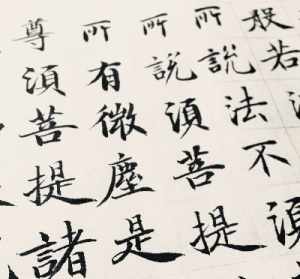 般若
所說法不須
所說須菩提
所有微塵是
尊須菩提諸